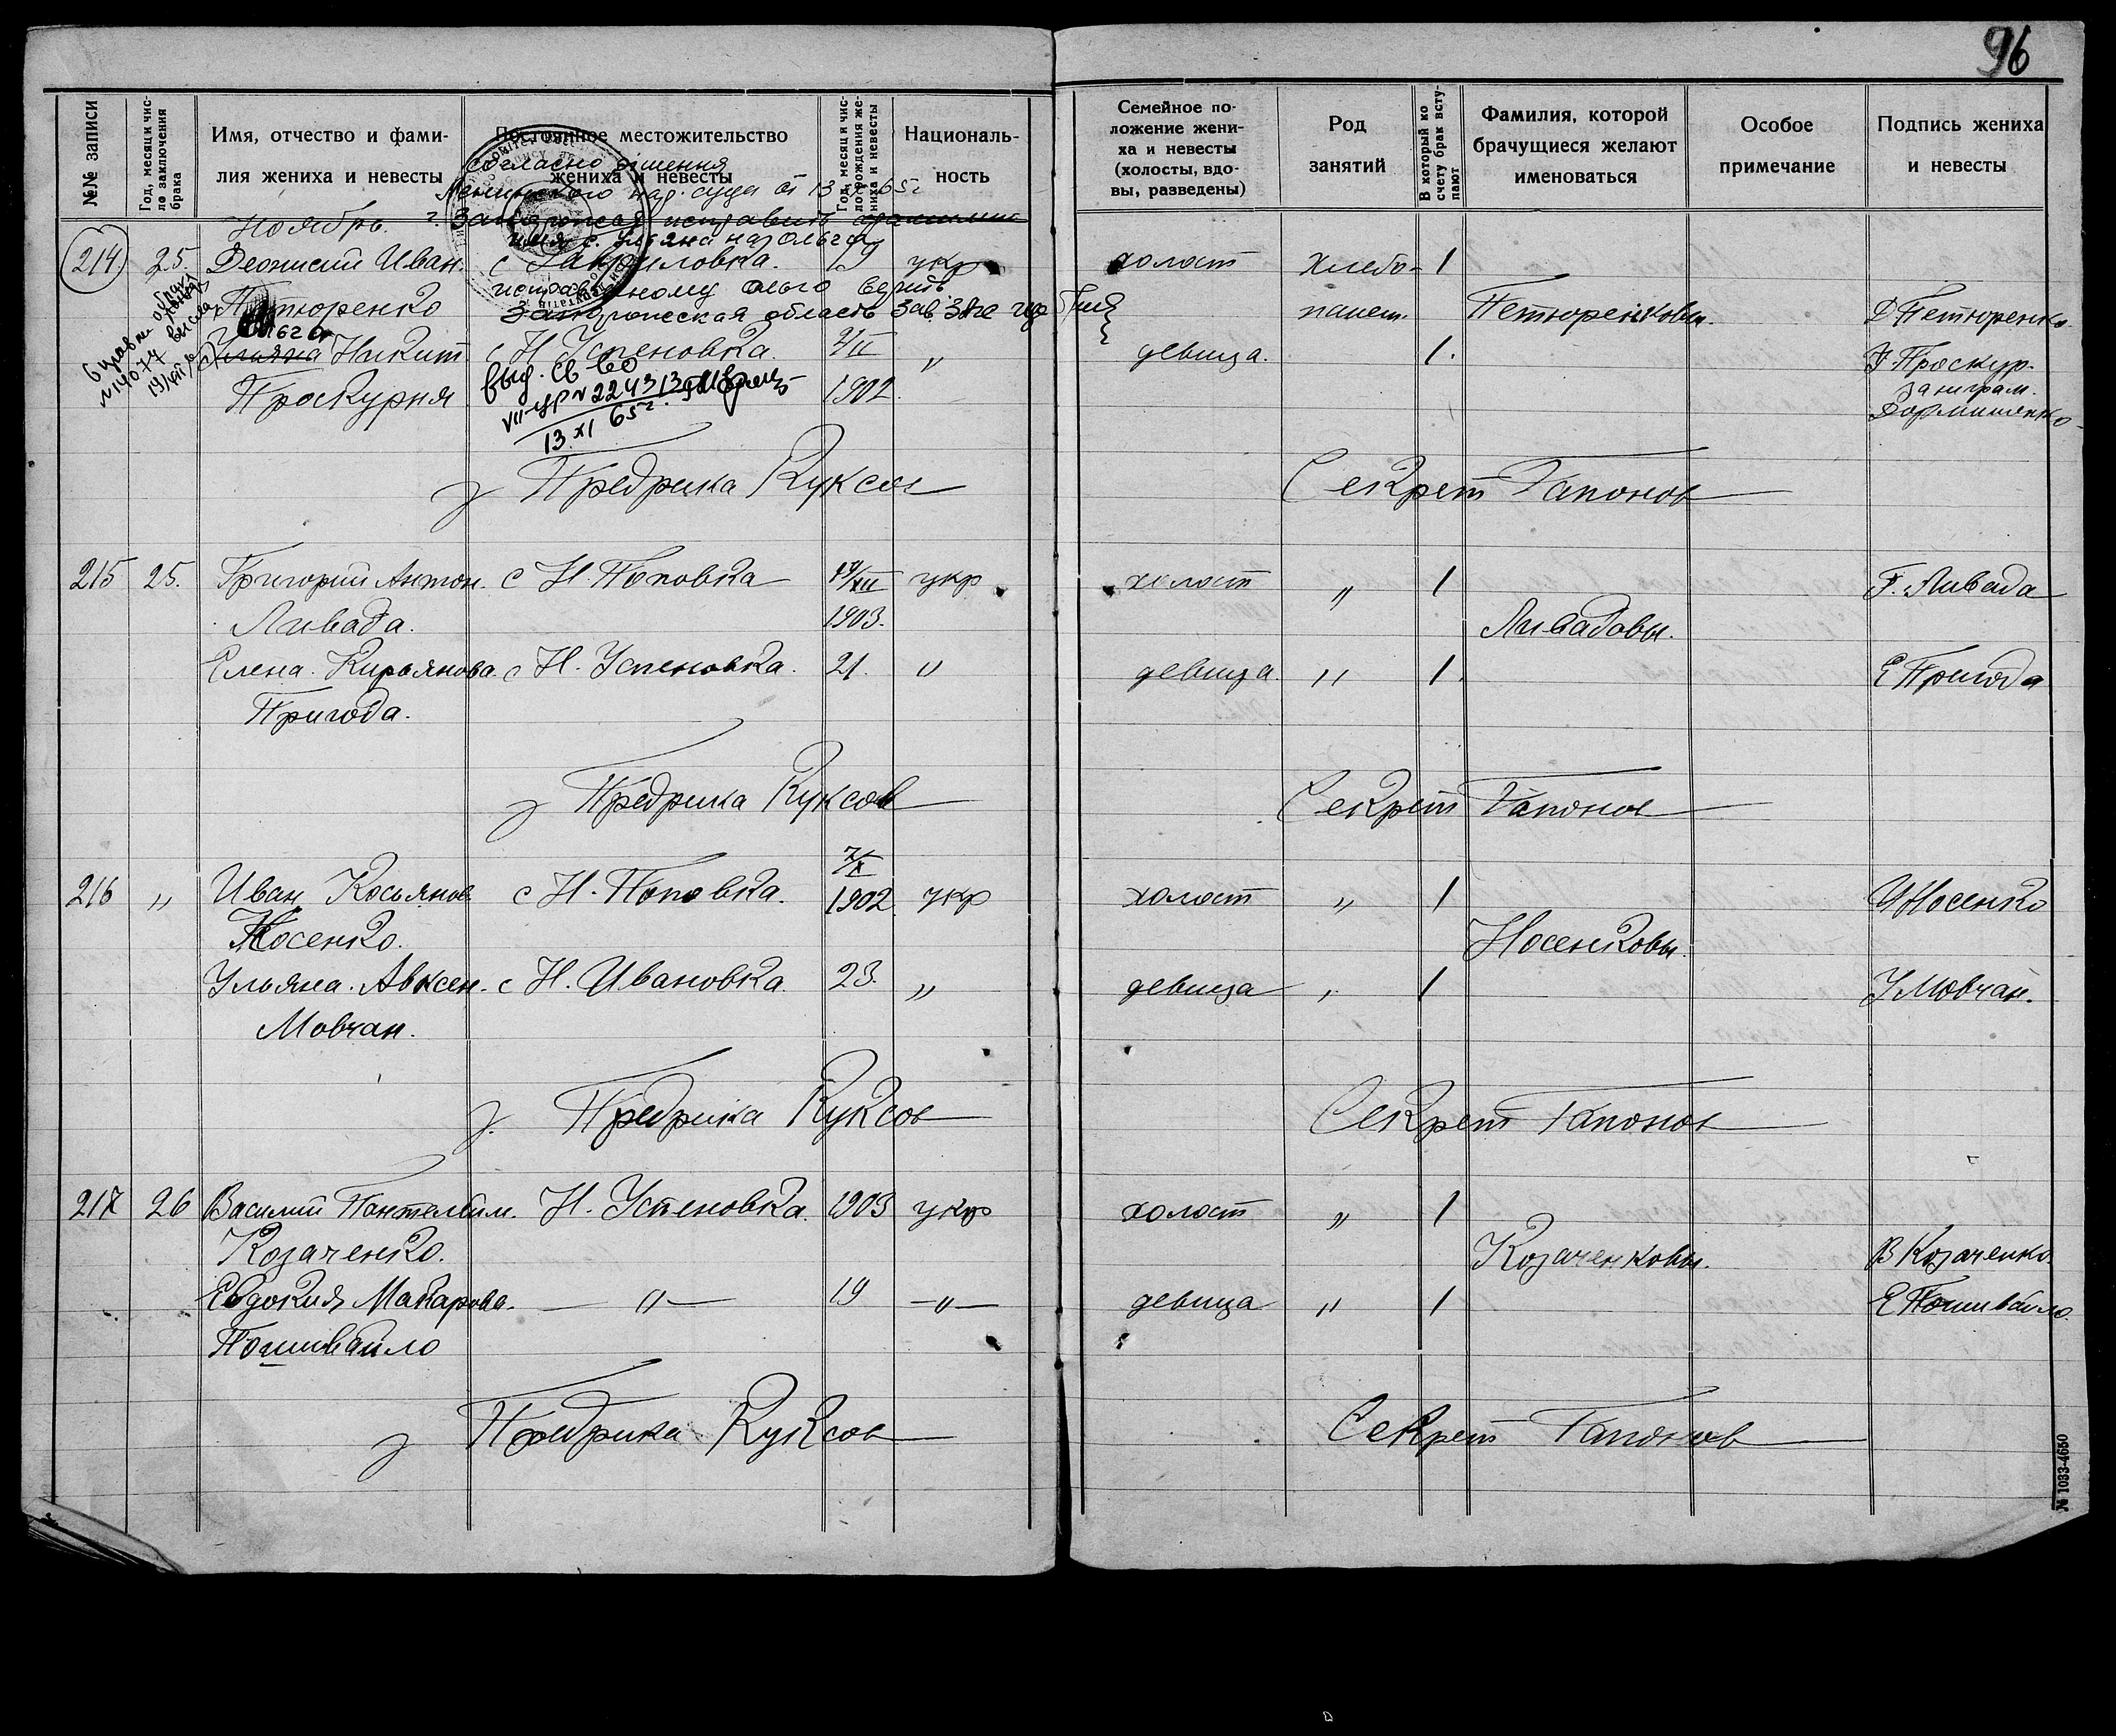 96
№№ записи
Год, месяц и чис-
ло заключения
брака
Имя, отчество и фами-
лия жениха и невесты
Постоянное местожительство
жениха и невесты
Год, месяц и чис-
ло рождения же-
ниха и невесты
Националь-
ность
Семейное по-
ложение жени-
ха и невесты
(холосты, вдо-
вы, разведены)
Род
занятий
В который по
счету брак всту-
пают
Фамилия, которой
брачущиеся желают
именоваться
Особое
примечание
Подпись жениха
и невесты
Согласно рішення
Ленинского нар. суда от 13 65г
г. Запорожья исправить
имя с Ульяна на Ольга
Ноябрь.
214 25. Деонисий Иван. с Гавриловка. 19 укр холост хлебо- 1
исправленному Ольга верить
Петюренко Запорожская область Зав. пашет. Петюренковы. Д Петюренко
Справка о браке
№ 14074 выслана
Ольга
Ульяна Никит с Н Успеновка. 2/II „ девица. 1. У Проскур.
Проскурня 1902. за неграм.
выд. св-во
VII-УР № 224313
13 XI 65г.
З Предрика Куксов Секрет Гапонов
215 25. Григорий Антон. с Н. Поповка 17/XII укр холост „ 1 Г. Ливада
Ливада. 1903. Ливадовы.
Елена. Кирьянова. с Н. Успеновка. 21. „ девица. „ 1. Е Пригода
Пригода.
З Предрика Куксов Секрет Гапонов
7/X
216 „ Иван Косьянов с Н. Поповка. 1902. укр холост „ 1 И Носенко
Носенко. Носенковы.
Ульяна. Авксен. с Н. Ивановка. 23. „ девица „ 1 У Мовчан.
Мовчан.
З. Предрика Куксов Секрет Гапонов
217 26 Василий Пантелейм. Н. Успеновка. 1903 укр холост „ 1
Козаченко. Козаченковы. В Козаченко.
Евдокия Макарова. — „ — 19 — „ — девица „ 1 Е Пошивайло.
Пошивайло
З Предрика Куксов Секрет Гапонов
№ 1033-4650